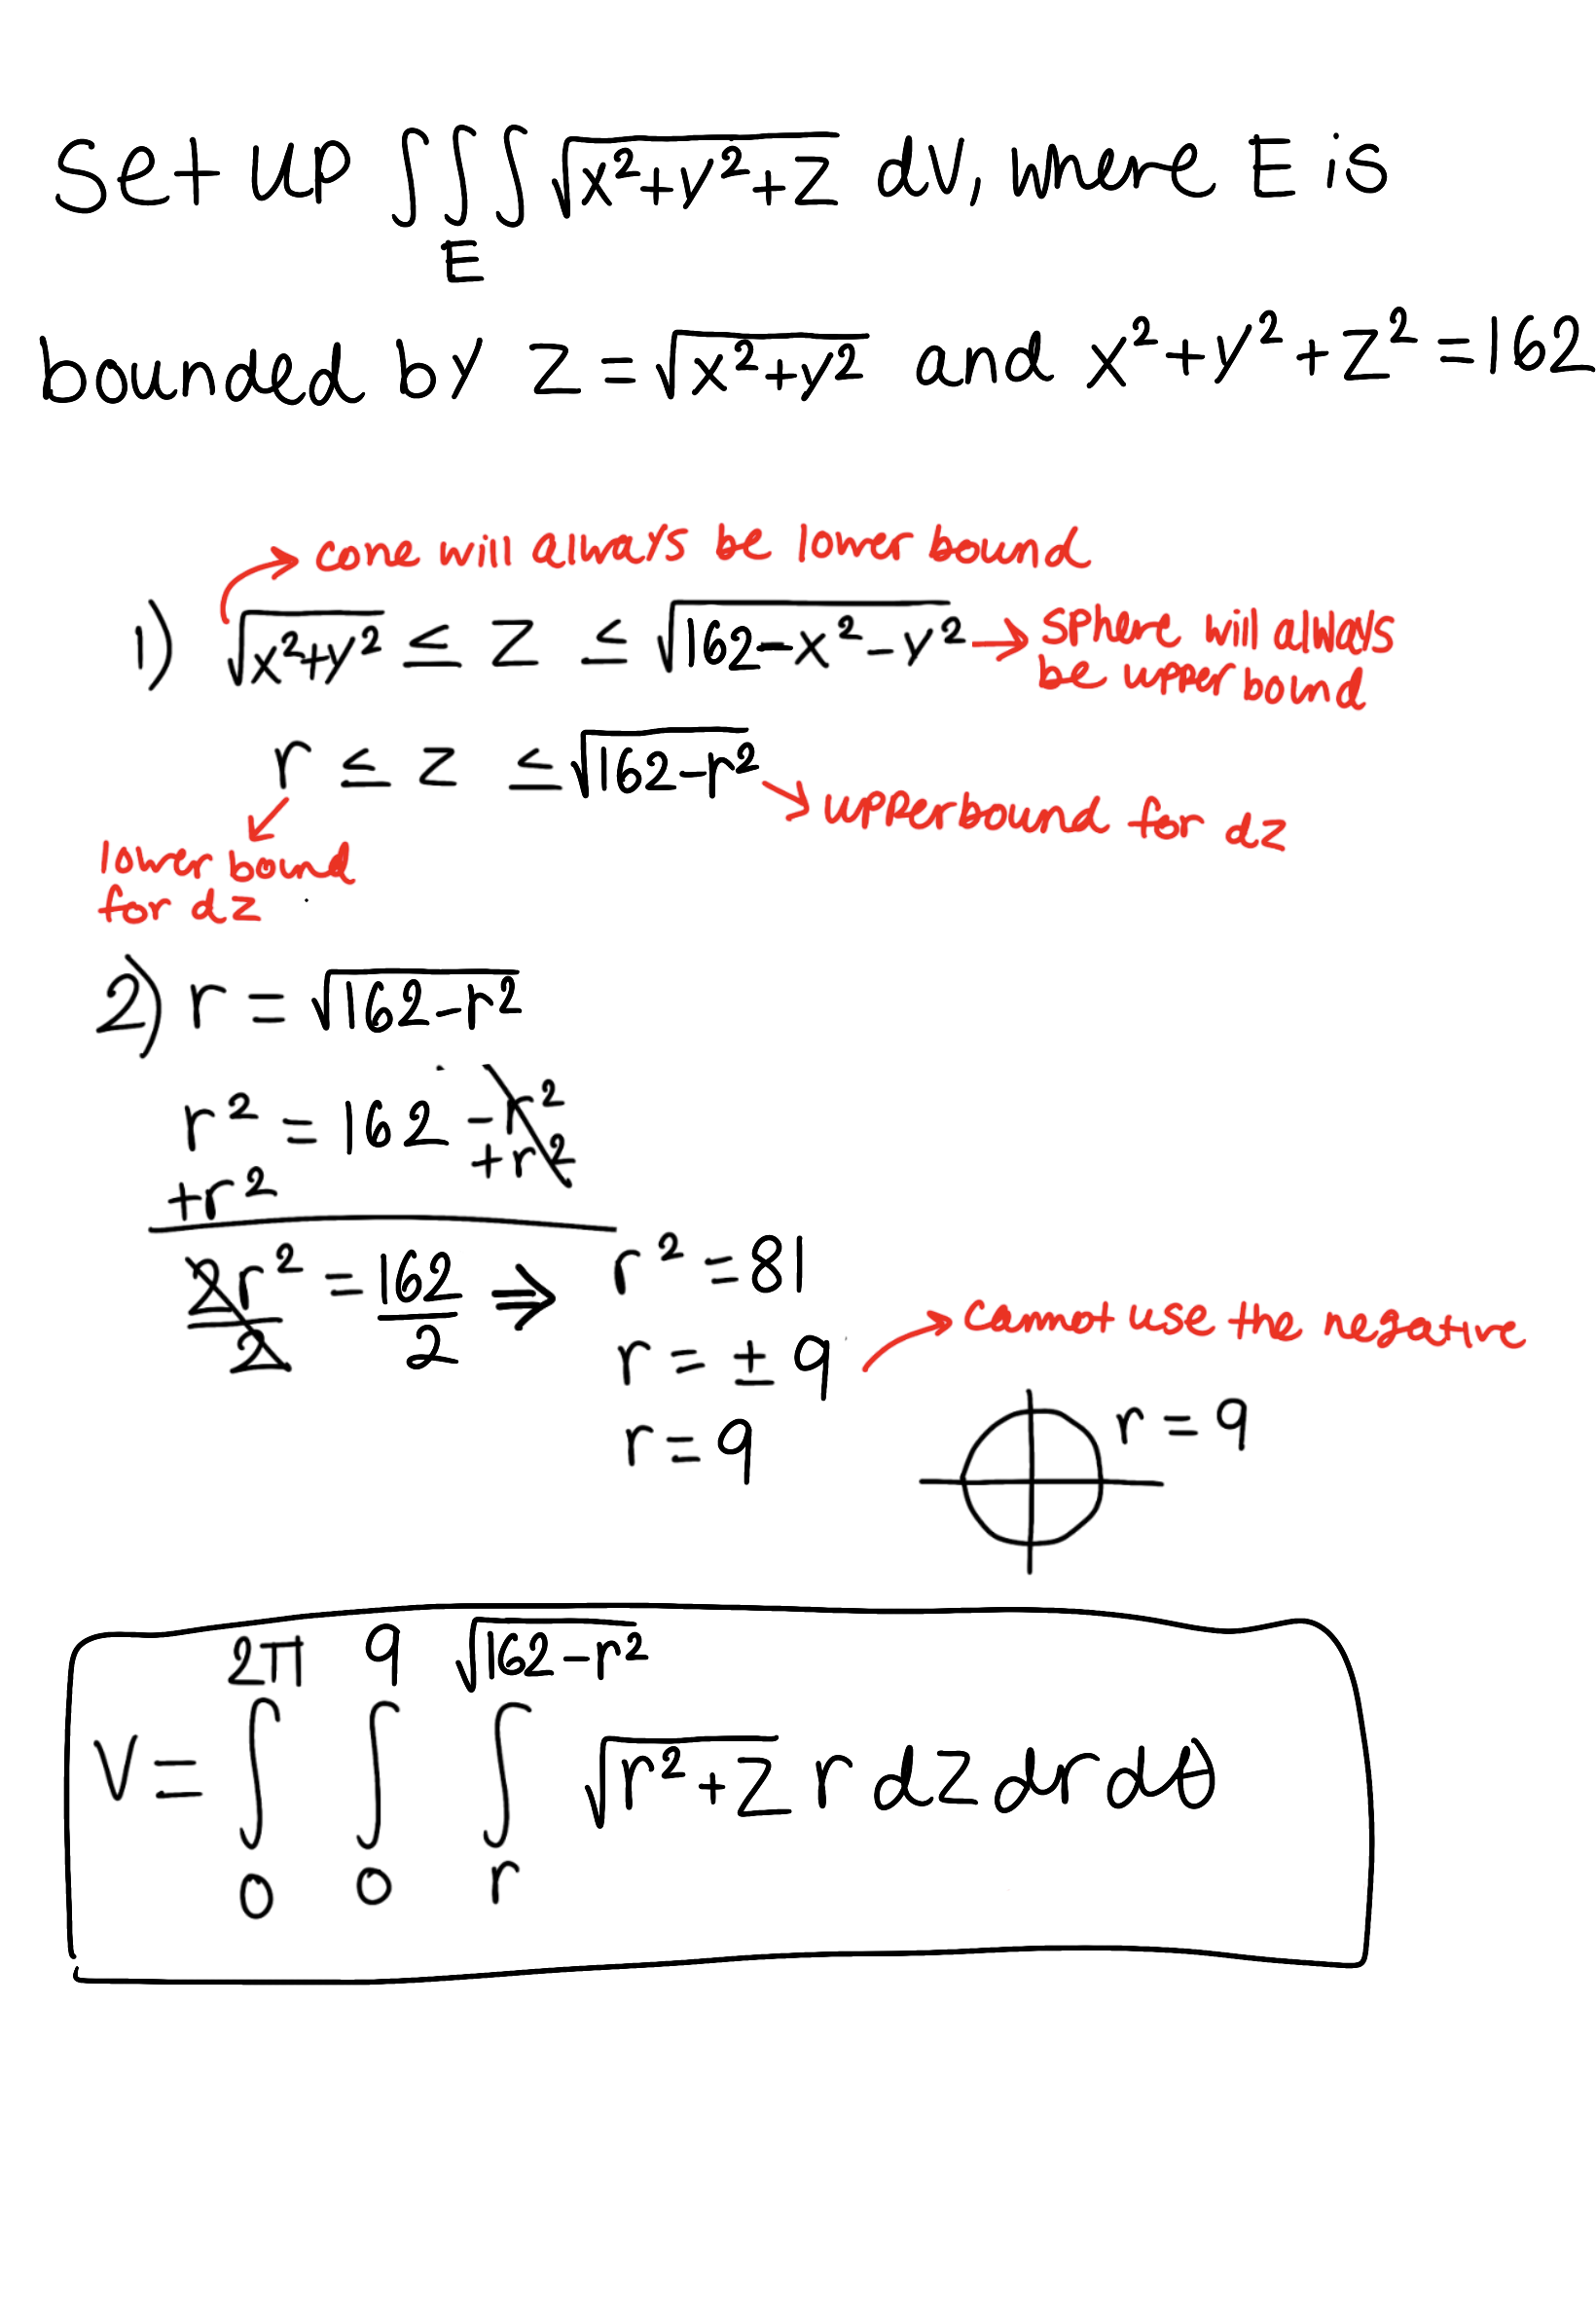 Set up ∫∫∫ √x²+y²+z dV, where E is
E
bounded by z = √x²+y² and x²+y²+z²=162
cone will always be lower bound
1) √x²+y² ≤ z ≤ √162-x²-y² → sphere will always
be upper bound
r ≤ z ≤ √162-r²
upper bound for dz
lower bound
for dz
2) r = √162-r²
r² = 162 -r²
+r²
+r²
2r²/2 = 162/2 ⇒ r² = 81
cannot use the negative
r = ± 9
r = 9
r = 9
2π 9 √162-r²
V = ∫ ∫ ∫ √r²+z r dz dr dθ
0 0 r